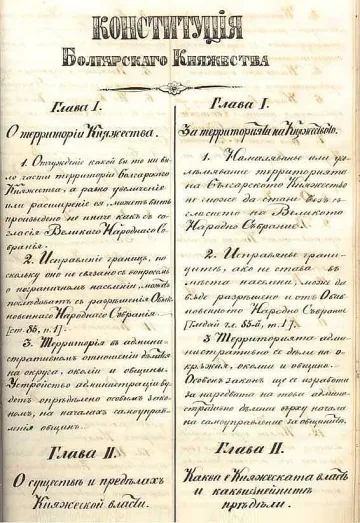 КОНСТИТУЦІЯ
БОЛГАРСКАГО КНЯЖЕСТВА
Глава I.
О территоріи Княжества.
1. Отчужденіе какой бы то ни бы
ло части территоріи Болгарскаго
Княжества, а равно увеличеніе
или расширеніе ея, можетъ быть
произведено не иначе какъ съ со-
гласія Великаго Народнаго Со-
бранія.
2. Исправленіе границъ, по-
скольку оно не связано съ вопросомъ
о пограничномъ населеніи,
послѣдовать съ разрѣшенія Обык-
новеннаго Народнаго Собранія
[ст. 85, п. 1].
3. Территорія въ админи-
стративномъ отношеніи дѣлится
на округа, околіи и общины.
Устройство администраціи бу-
детъ опредѣлено особымъ зако-
номъ, на началахъ самоуправ-
ленія общинъ.
Глава II.
О существѣ и предѣлахъ
Княжеской власти.
Глава I.
За территорията на Княжеството.
1. Намаляванье или уго-
лѣмяванье территорията
на Българското Княжество
не може да стане безъ съ-
гласието на Великото
Народно Събрание.
2. Исправянье грани-
цитѣ, ако не става въ
мѣста населени, може да
бѫде разрѣшено и отъ Оби-
кновенното Народно Събрание
[Гледай чл. 85-й, т. 1].
3. Территорията адми-
нистративно се дѣли на о-
крѫжия, околии и общини.
Особенъ законъ ще се изработи
за наредбата на това админи-
стративно дѣление върху начала
на самоуправление за общинитѣ.
Глава II.
Каква е Княжеската власть
и каквиснейнитъ
прѣдѣли.